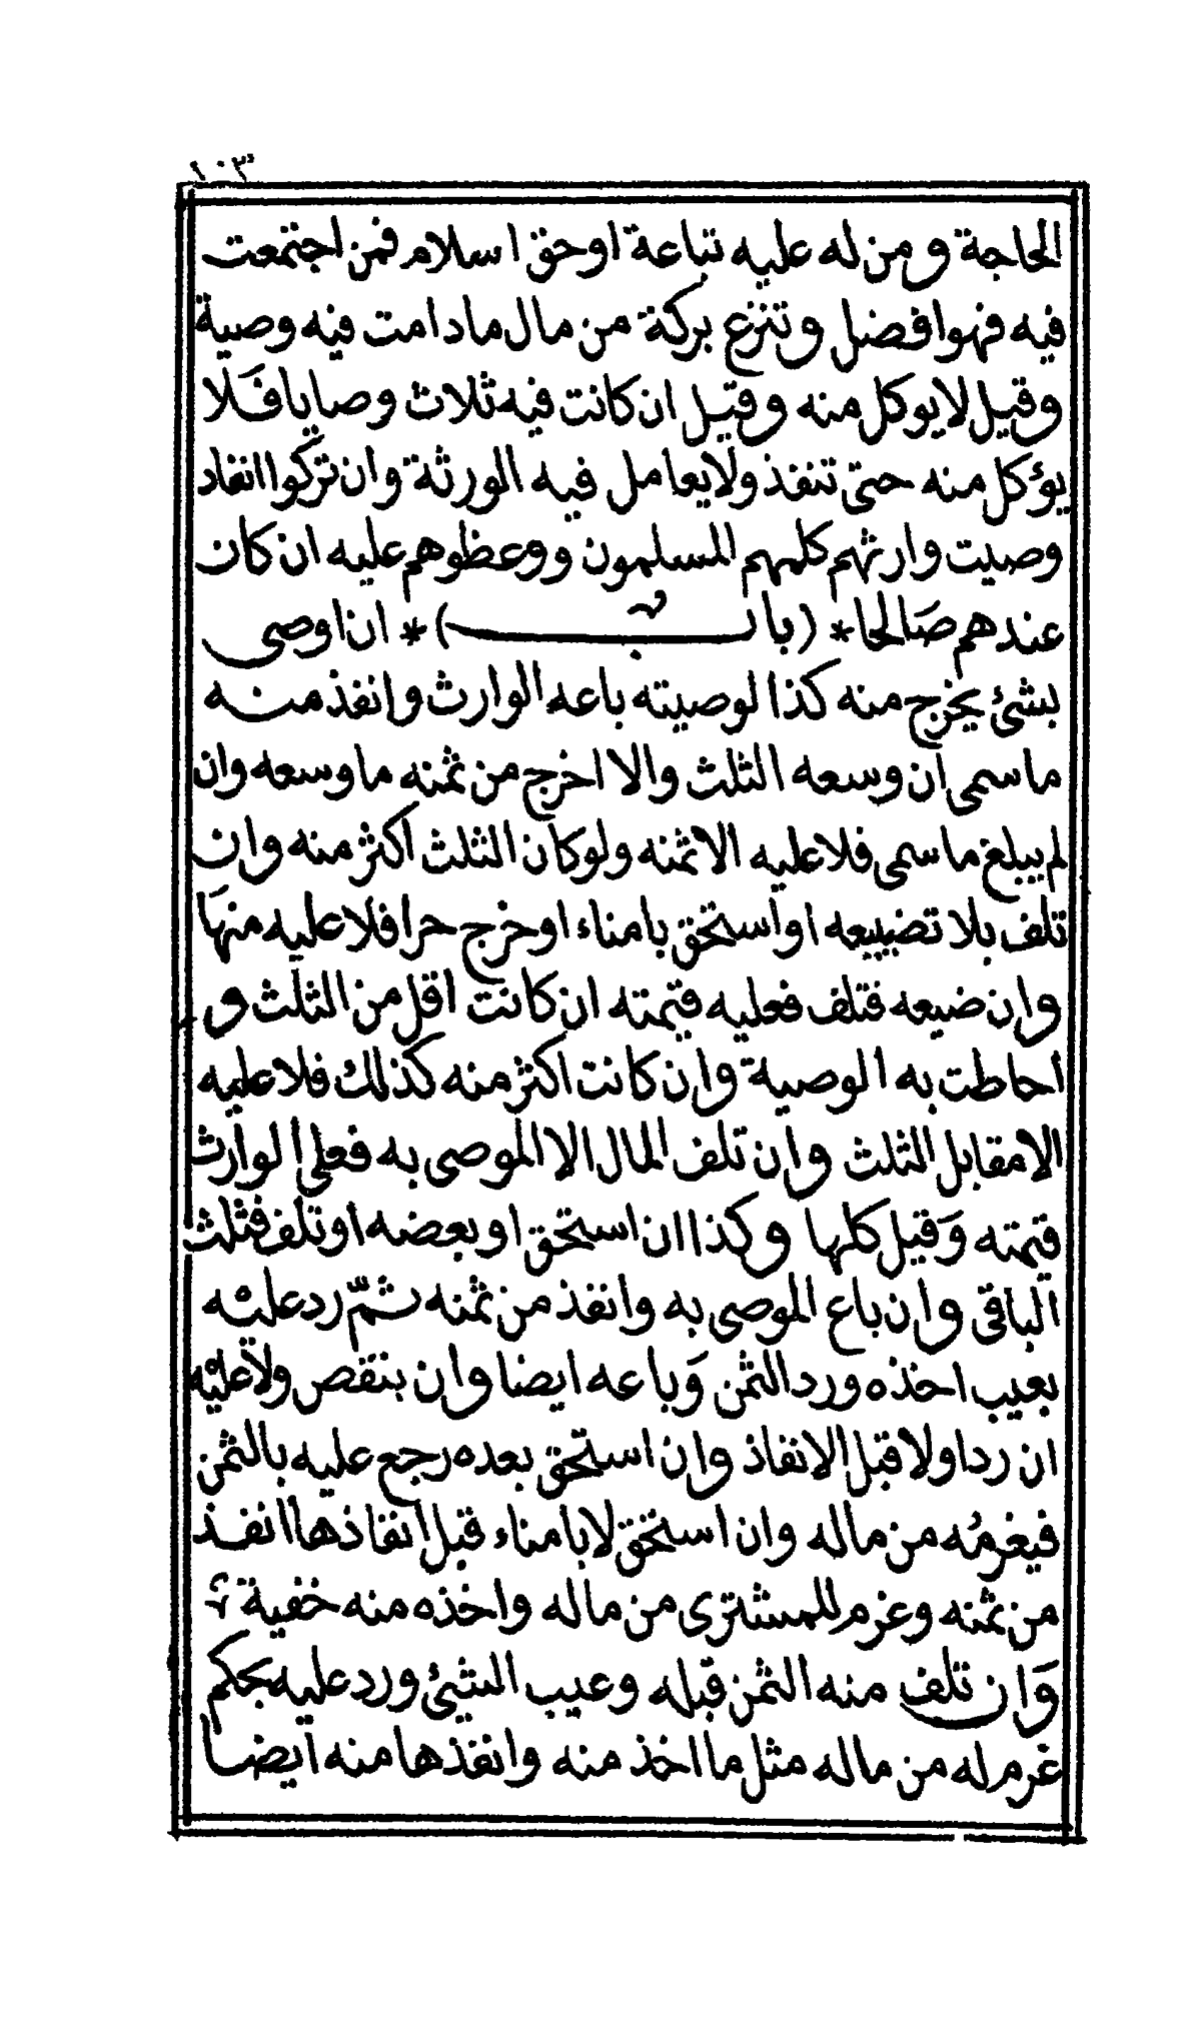 ١٠٣
الحاجة ومن له عليه تباعة اوحق اسلام فمن اجتمعت
فيه فهوافضل وتنزع بركة من مال مادامت فيه وصية
وقيل لايوكل منه وقيل ان كانت فيه ثلاث وصايا فَلا
يؤكل منه حتى تنفذ ولايعامل فيه الورثة وان تركوا انفاد
وصيت وارثهم كلمهم المسلمون ووعظوهم عليه ان كان
عندهم صَالحا * (باب) * ان اوصى
بشئ يخرج منه كذا لوصيته باعه الوارث وانفذ منه
ماسمى ان وسعه الثلث والا اخرج من ثمنه ماوسعه وان
لم يبلغ ماسمى فلاعليه الاثمنه ولوكان الثلث اكثر منه وان
تلف بلا تضييعه اواستحق بامناء اوخرج حرا فلاعليه منهَا
وان ضيعه فتلف فعليه قيمته ان كانت اقل من الثلث و
احاطت به الوصية وان كانت اكثر منه كذلك فلاعليه
الامقابل الثلث وان تلف المال الا الموصى به فعلى الوارث
قيمته وَقيل كلها وكذا ان استحق اوبعضه اوتلف فثلث
الباقى وان باع الموصى به وانفذ من ثمنه ثمّ رد عليه
بعيب اخذه ورد الثمن وَباعه ايضا وان بنقص ولاعليه
ان رد اولا قبل الانفاذ وان استحق بعده رجع عليه بالثمن
فيغرمُه من ماله وان استحق لابامناء قبل انفاذها انفذ
من ثمنه وغرم للمشترى من ماله واخذه منه خفية
وَان تلف منه الثمن قبله وعيب الشئ ورد عليه بحكم
غرم له من ماله مثل ما اخذ منه وانفذها منه ايضا